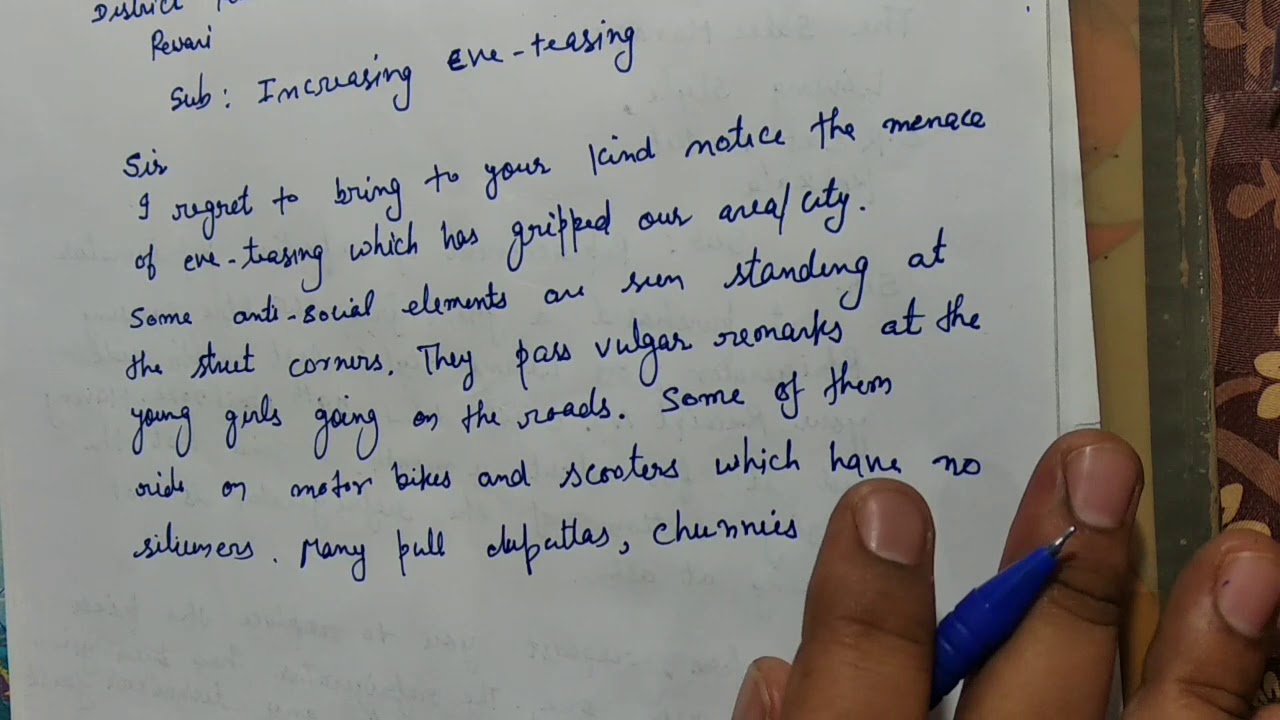 District
Rewari
Sub: Increasing eve-teasing
Sir
I regret to bring to your kind notice the menace
of eve-teasing which has gripped our area/city.
Some anti-social elements are seen standing at
the street corners. They pass vulgar remarks at the
young girls going on the roads. Some of them
ride on motor bikes and scooters which have no
silinsers. Many pull duputtas, chunnies